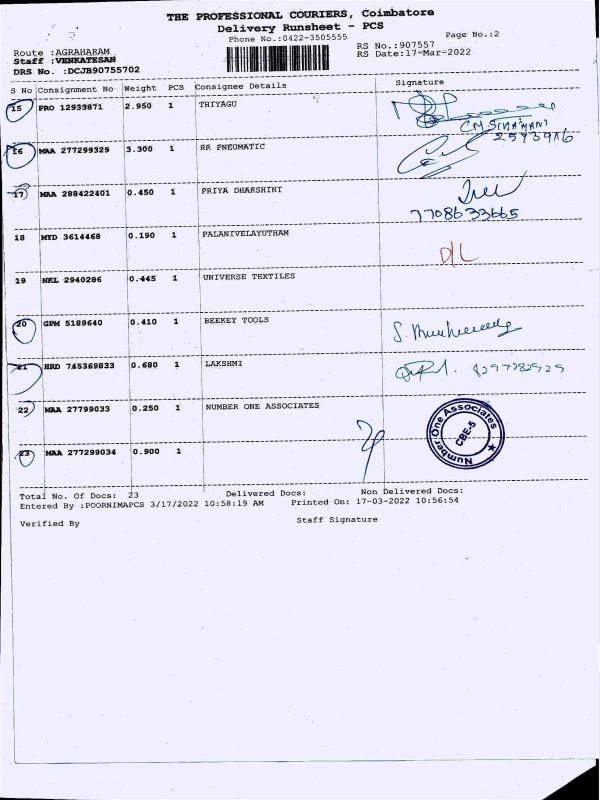 THE PROFESSIONAL COURIERS, Coimbatore
Delivery Runsheet - PCS
Phone No.:0422-3505555
Page No.:2
Route :AGRAHARAM
Staff :VENKATESAN
DRS No. :DCJB90755702
RS No.:907557
RS Date:17-Mar-2022
S No Consignment No Weight PCS Consignee Details Signature
15 PRO 12933871 2.950 1 THIYAGU
CM SIVAMANI
16 MAA 277299329 3.300 1 RR PNEUMATIC
17 MAA 288422401 0.450 1 PRIYA DHARSHINI
7708633665
18 MYD 3614468 0.190 1 PALANIVELAYUTHAM
D/L
19 NKL 2940286 0.445 1 UNIVERSE TEXTILES
20 GPM 5189640 0.410 1 BEEKEY TOOLS
21 HRD 745369833 0.680 1 LAKSHMI
22 MAA 27799033 0.250 1 NUMBER ONE ASSOCIATES
Number One Associates
CBE-5
23 MAA 277299034 0.900 1
Total No. Of Docs: 23 Delivered Docs: Non Delivered Docs:
Entered By :POORNIMAPCS 3/17/2022 10:58:19 AM Printed On: 17-03-2022 10:56:54
Verified By Staff Signature